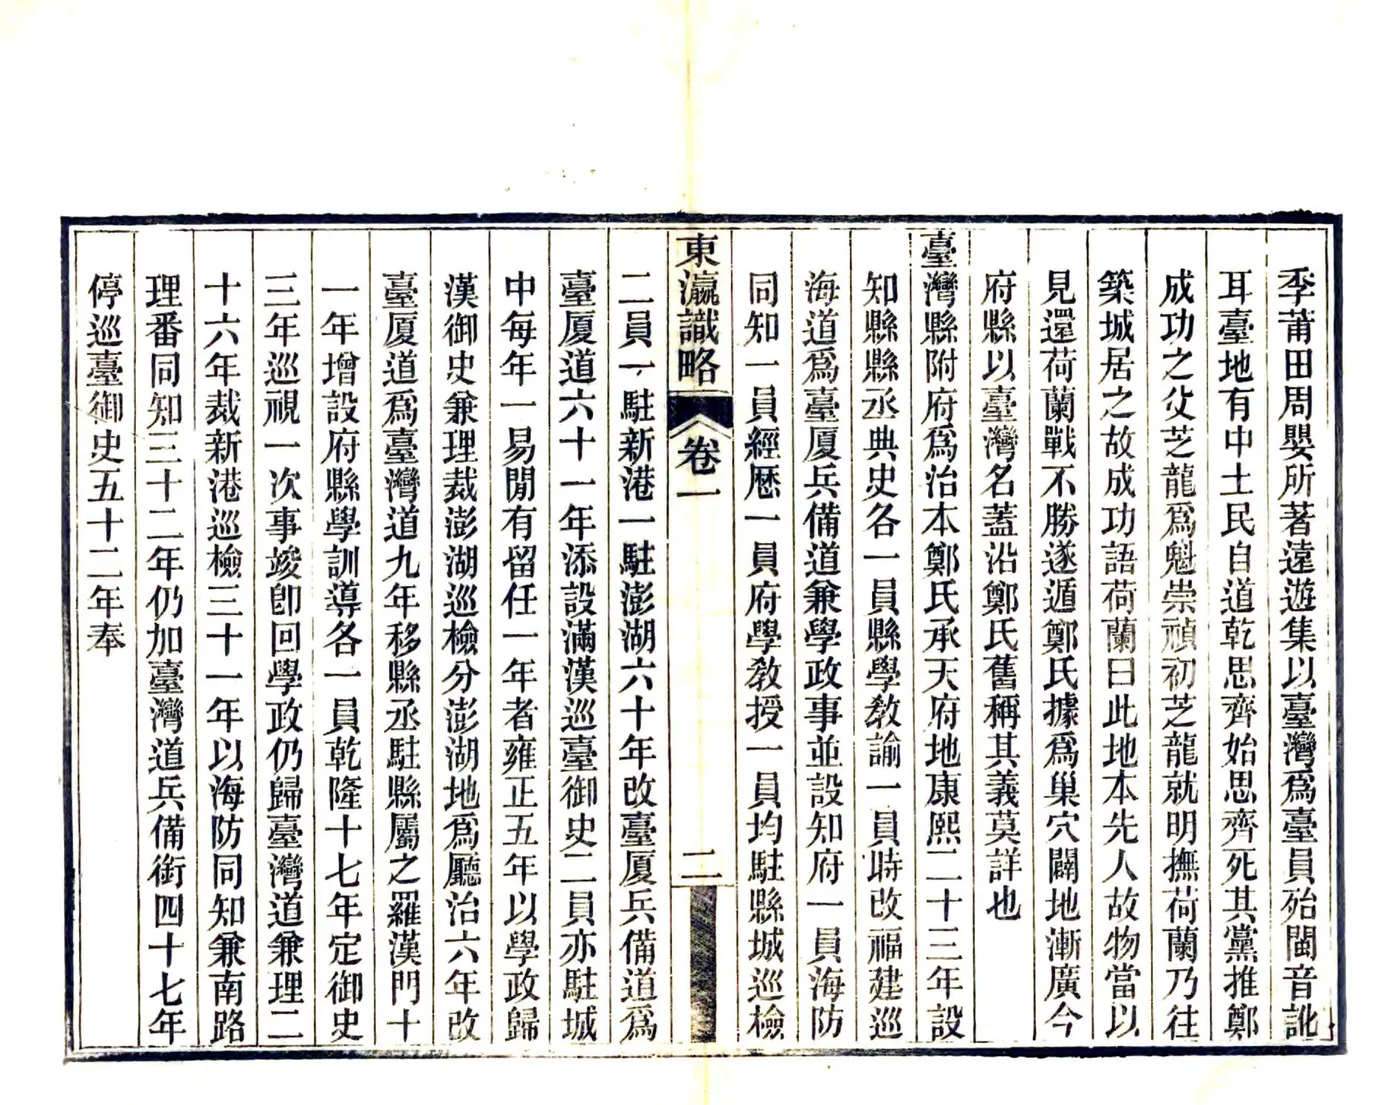 季莆田周嬰所著遠遊集以臺灣爲臺員殆閩音訛
耳臺地有中土民自道乾思齊始思齊死其黨推鄭
成功之父芝龍爲魁崇禎初芝龍就明撫荷蘭乃往
築城居之故成功語荷蘭曰此地本先人故物當以
見還荷蘭戰不勝遂遁鄭氏據爲巢穴闢地漸廣今
府縣以臺灣名蓋沿鄭氏舊稱其義莫詳也
臺灣縣附府爲治本鄭氏承天府地康熙二十三年設
知縣縣丞典史各一員縣學敎諭一員時改福建巡
海道爲臺厦兵備道兼學政事並設知府一員海防
同知一員經歷一員府學敎授一員均駐縣城巡檢
東瀛識略 卷一 二
二員一駐新港一駐澎湖六十年改臺厦兵備道爲
臺厦道六十一年添設滿漢巡臺御史二員亦駐城
中每年一易閒有留任一年者雍正五年以學政歸
漢御史兼理裁澎湖巡檢分澎湖地爲廳治六年改
臺厦道爲臺灣道九年移縣丞駐縣屬之羅漢門十
一年增設府縣學訓導各一員乾隆十七年定御史
三年巡視一次事竣卽回學政仍歸臺灣道兼理二
十六年裁新港巡檢三十一年以海防同知兼南路
理番同知三十二年仍加臺灣道兵備銜四十七年
停巡臺御史五十二年奉